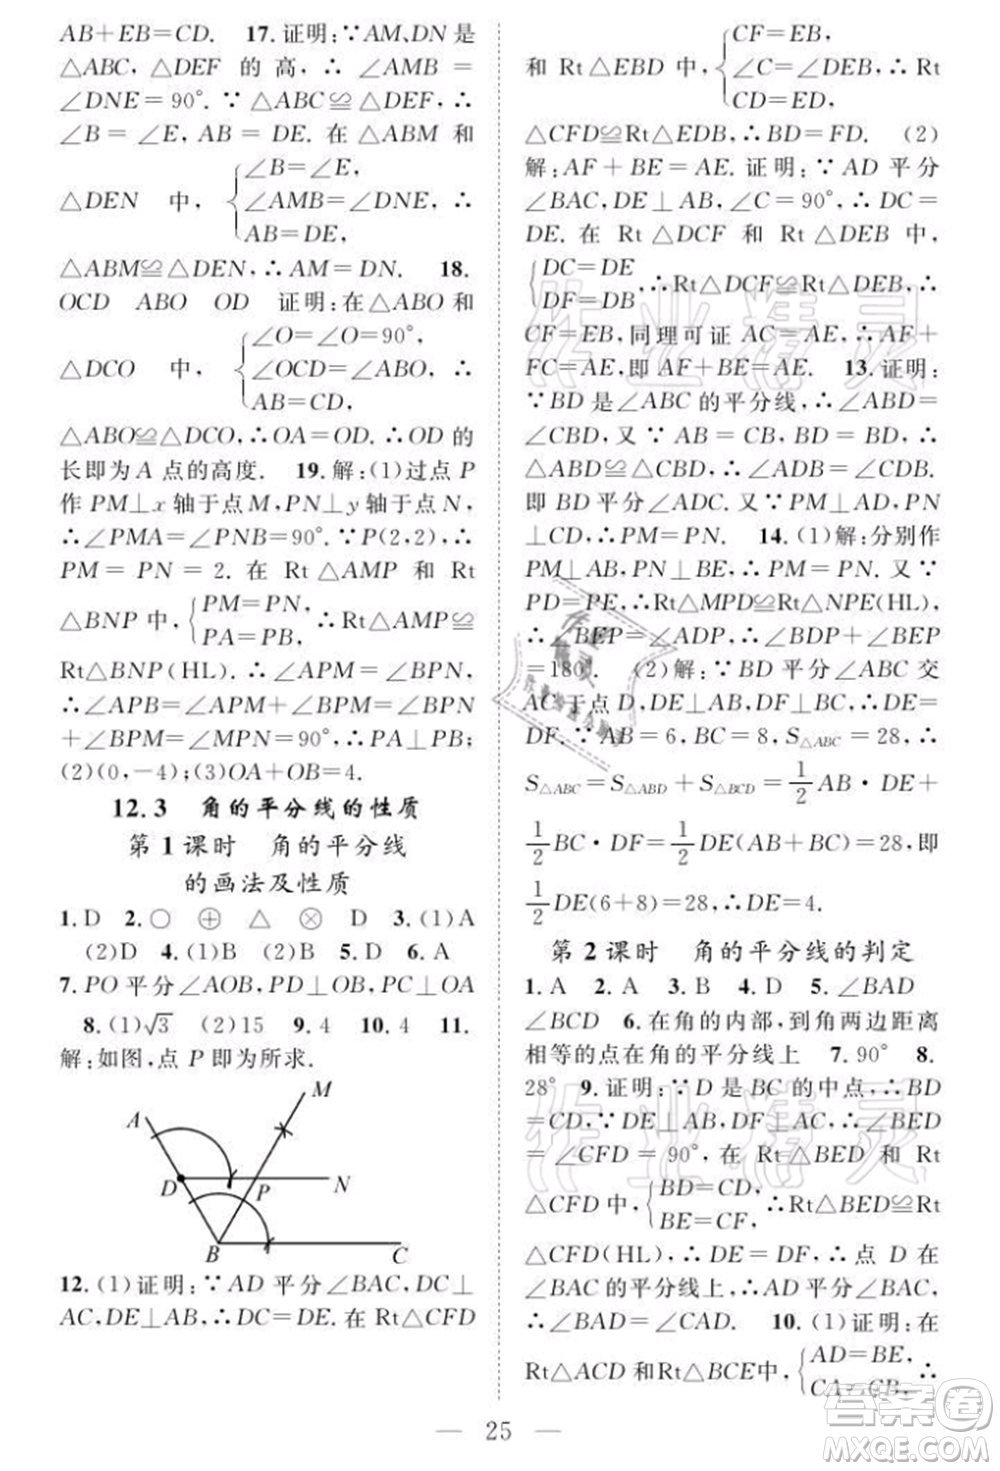 AB+EB=CD. 17.证明:∵AM、DN是
△ABC,△DEF 的高,∴∠AMB =
∠DNE=90°. ∵△ABC≌△DEF,∴
∠B=∠E,AB=DE.在△ABM 和
△DEN 中,{∠B=∠E,
∠AMB=∠DNE,
AB=DE, ∴
△ABM≌△DEN,∴AM=DN. 18.
OCD ABO OD 证明:在△ABO和
△DCO 中,{∠O=∠O=90°,
∠OCD=∠ABO,
AB=CD, ∴
△ABO≌△DCO,∴OA=OD.∴OD的
长即为A点的高度. 19.解:(1)过点P
作PM⊥x轴于点M,PN⊥y轴于点N,
∴∠PMA=∠PNB=90°.∵P(2,2),∴
PM=PN=2.在 Rt△AMP 和 Rt
△BNP中,{PM=PN,
PA=PB, ∴Rt△AMP≌
Rt△BNP(HL).∴∠APM=∠BPN.
∴∠APB=∠APN+∠BPN=∠APN
+∠APM=∠MPN=90°,∴PA⊥PB;
(2)(0,-4);(3)OA+OB=4.
12.3 角的平分线的性质
第1课时 角的平分线
的画法及性质
1.D 2.○ ⊕ △ ⊗ D 3.(1)A
(2)D 4.(1)B (2)B 5.D 6.A
7.PO平分∠AOB,PD⊥OB,PC⊥OA
8.(1)√3 (2)15 9.4 10.4 11.
解:如图,点P即为所求.
M
A
D
P
N
B
C
12.(1)证明:∵AD平分∠BAC,DC⊥
AC,DE⊥AB,∴DC=DE.在Rt△CFD
和 Rt△EBD 中,{CF=EB,
∠C=∠DEB,
CD=ED, ∴Rt
△CFD≌Rt△EDB,∴BD=FD. (2)
解:AF+BE=AE.证明:∵AD平分
∠BAC,DE⊥AB,∠C=90°,∴DC=
DE.在 Rt△DCF 和 Rt△DEB 中,
{DC=DE
DF=DB .∴Rt△DCF≌Rt△DEB,∴
CF=EB,同理可证AC=AE,∴AF+
FC=AE,即AF+BE=AE. 13.证明:
∵BD是∠ABC的平分线,∴∠ABD=
∠CBD,又∵AB=CB,BD=BD,∴
△ABD≌△CBD,∴∠ADB=∠CDB.
即BD平分∠ADC.又∵PM⊥AD,PN
⊥CD,∴PM=PN. 14.(1)解:分别作
PM⊥AB,PN⊥BE,∴PM=PN.又∵
PD=PE,∴Rt△MPD≌Rt△NPE(HL),
∴∠BEP=∠ADP,∴∠BDP+∠BEP
=180°. (2)解:∵BD平分∠ABC交
AC于点D,DE⊥AB,DF⊥BC,∴DE=
DF.∵AB=6,BC=8,S△ABC=28,∴
S△ABC=S△ABD+S△BCD=1/2AB·DE+
1/2BC·DF=1/2DE(AB+BC)=28,即
1/2DE(6+8)=28,∴DE=4.
第2课时 角的平分线的判定
1.A 2.A 3.D 4.D 5.∠BAD
∠BCD 6.在角的内部,到角两边距离
相等的点在角的平分线上 7.90° 8.
28° 9.证明:∵D是BC的中点,∴BD
=CD,∵DE⊥AB,DF⊥AC,∴∠BED
=∠CFD=90°,在 Rt△BED 和 Rt
△CFD中,{BD=CD,
BE=CF, ∴Rt△BED≌Rt
△CFD(HL).∴DE=DF=∴点D在
∠BAC的平分线上,∴AD平分∠BAC,
∴∠BAD=∠CAD. 10.(1)证明:在
Rt△ACD和Rt△BCE中,{AD=BE,
CA=CB, ∴
25
作业精灵
作业精灵
答案圈
MXQE.COM